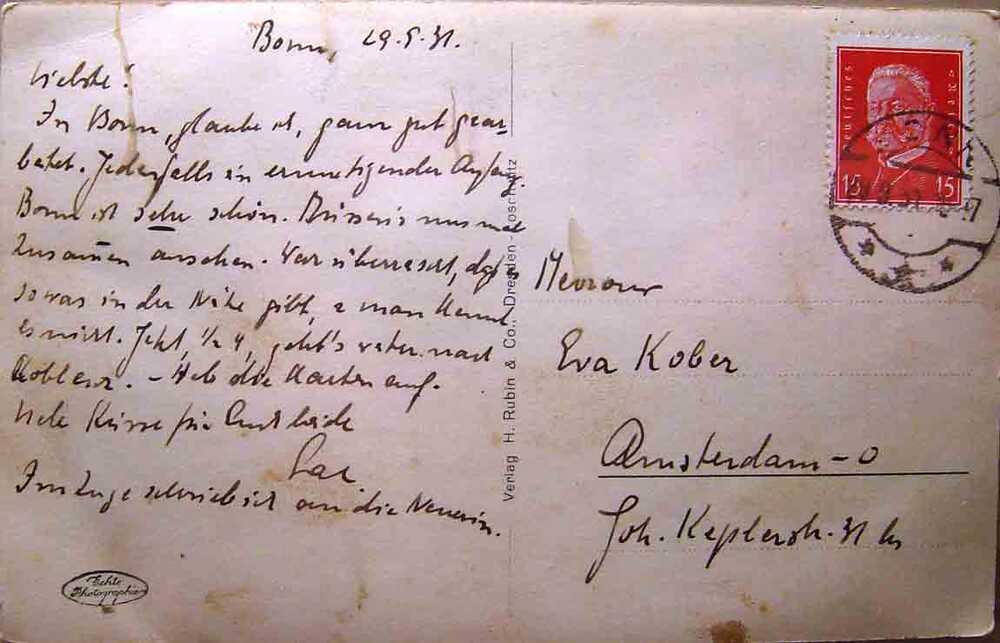 Bonn, 29.5.31.
Liebste!
In Bonn, glaube ich, ganz gut gear-
beitet. Jedenfalls ein ermutigender Anfang.
Bonn ist sehr schön. Müssen's uns mal
zusammen ansehen. War überrascht, daß es
sowas in der Nähe gibt, u man kennt
es nicht. Jetzt, 1/2 4, geht's weiter nach
Koblenz. - Heb die Karten auf.
Viele Küsse für Euch beide
Im Zuge schrieb ich an die
Deutsches Reich
15 15
Mevrouw
Eva Kober
Amsterdam-O
Joh. Keplerstr. 31
Verlag H. Rubin & Co., Dresden-Loschwitz
Echte
Photographie